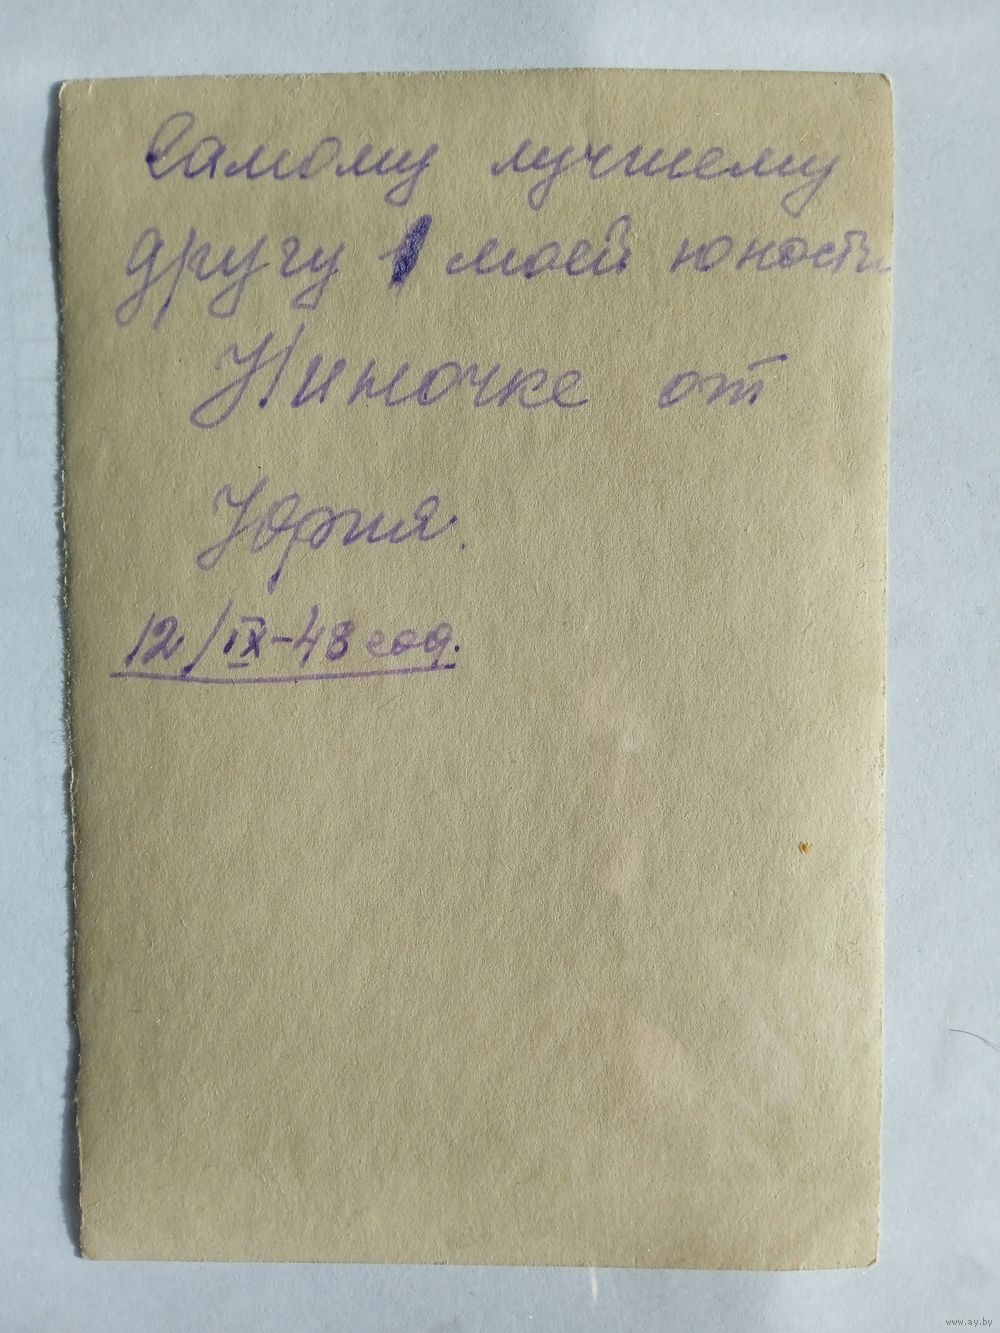 Самому лучшему
другу моей юности
Ниночке от
Юрия.
12/IX-48 год.
www.ay.by